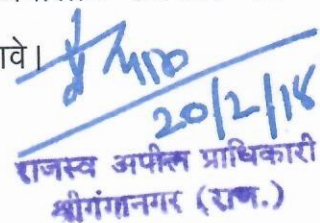 वे।
20/2/18
राजस्व अपील प्राधिकारी
श्रीगंगानगर (राज.)